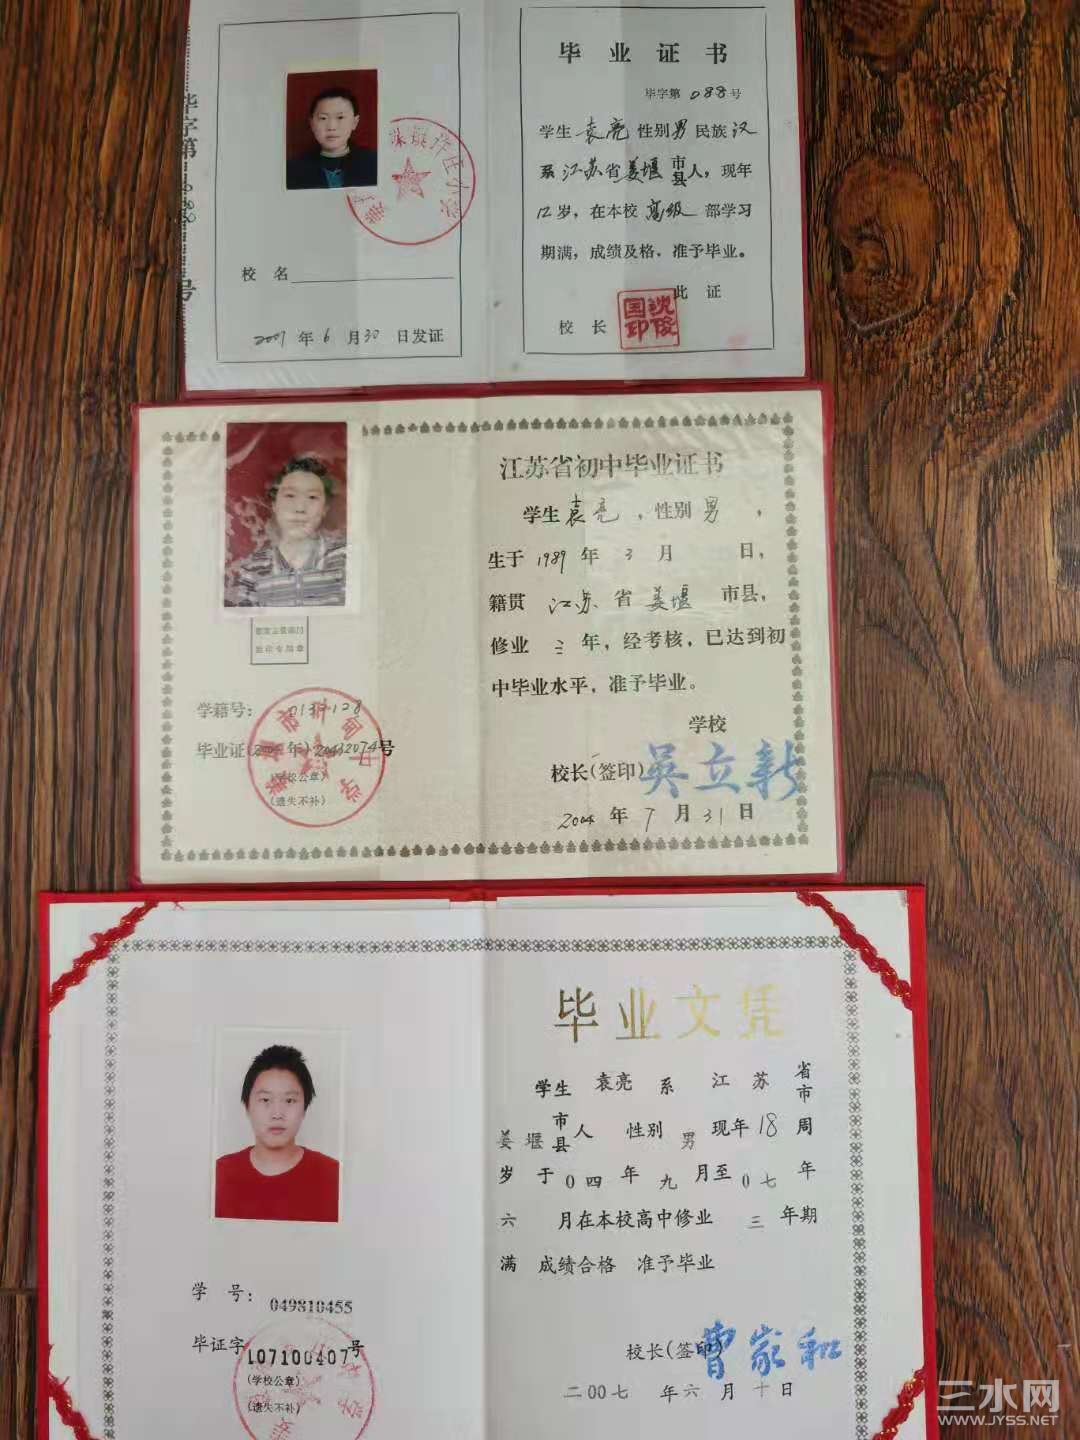 毕业证书
毕字第 088 号
学生 袁亮 性别 男 民族 汉
系 江苏省 姜堰 市县人，现年
12岁，在本校 高级 部学习
期满，成绩及格，准予毕业。
此证
校长
沈俊国印
毕字第
号
校名
2001年6月30日发证
江苏省初中毕业证书
学生 袁亮，性别 男，
生于 1989 年 3 月 日，
籍贯 江苏 省 姜堰 市县，
修业 三 年，经考核，已达到初
中毕业水平，准予毕业。
学校
校长(签印) 吴立新
2004 年 7 月 31 日
学籍号：
毕业证
号
(学校公章)
(遗失不补)
毕业文凭
学生 袁亮 系 江苏 省市
姜堰 市县人 性别 男 现年 18 周
岁 于 0四 年 九 月至 0七 年
六 月在本校高中修业 三 年期
满 成绩合格 准予毕业
校长(签印) 曹家和
二00七 年 六 月 十 日
学号: 049810455
毕证字 107100407 号
(学校公章)
(遗失不补)
三水网
WWW.JYSS.NET